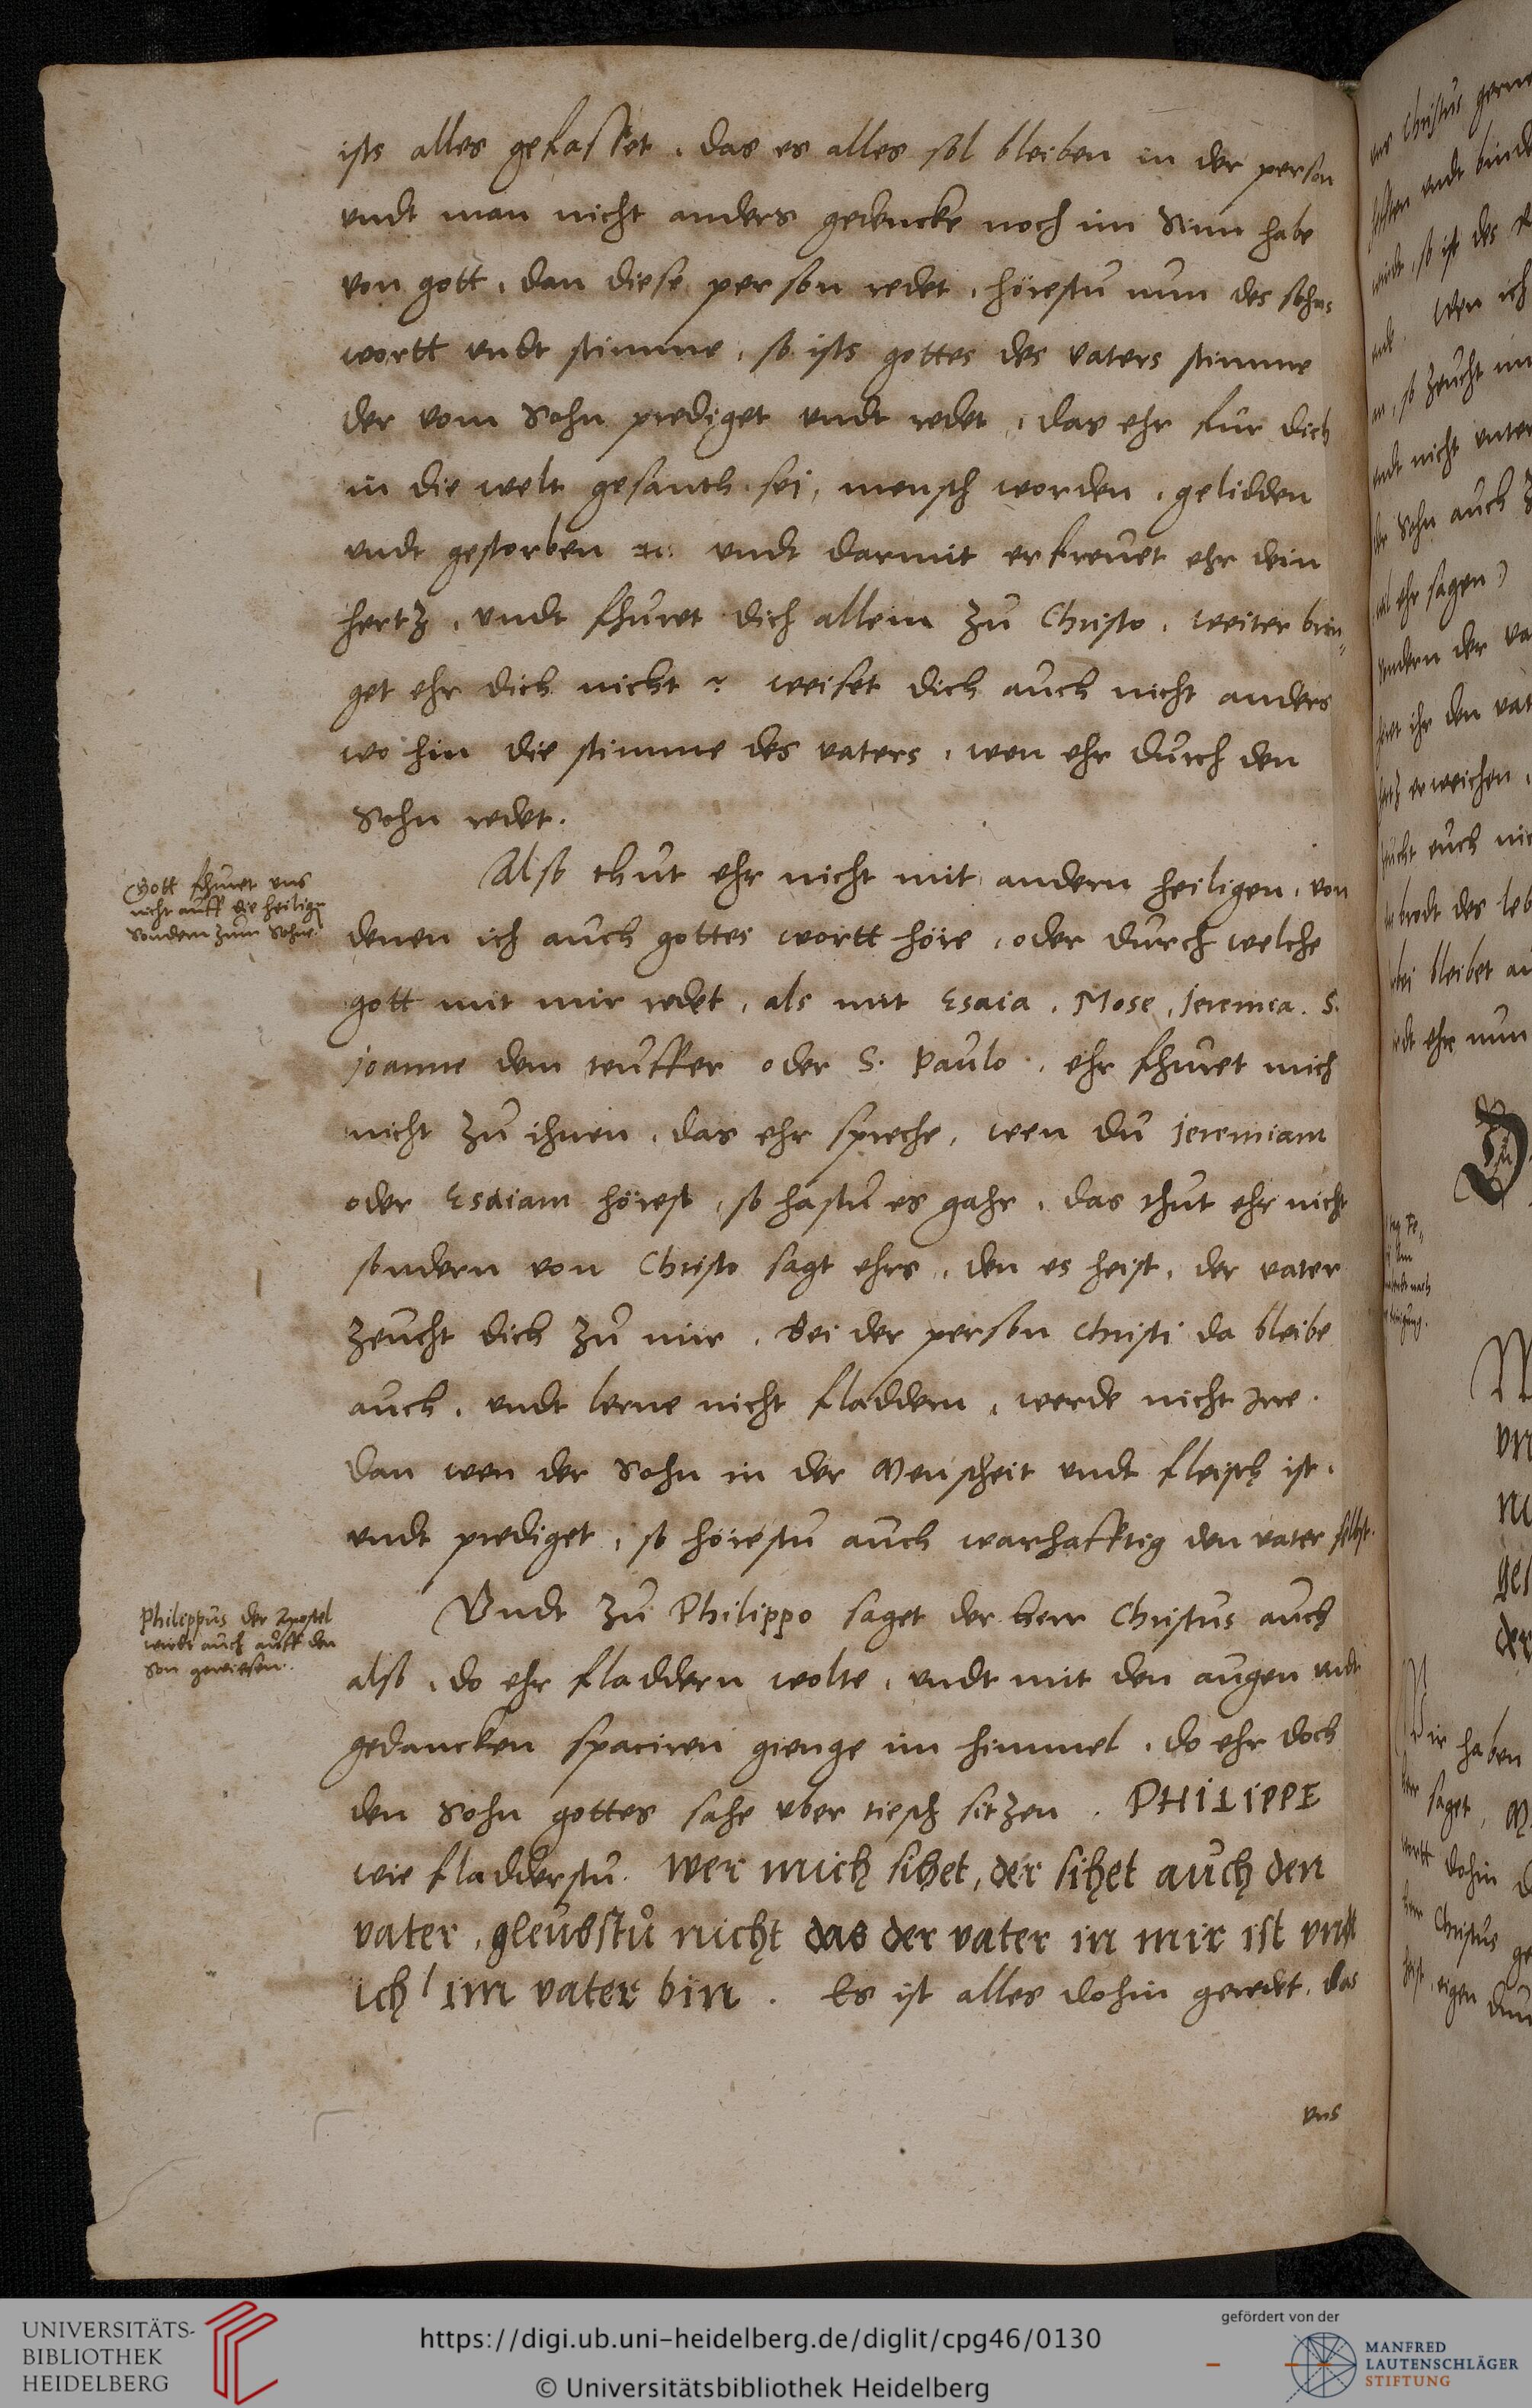 ists alles gefasset, das es alles sol bleiben in der person
undt man nicht anders gedencke noch im Sinn habe
von gott, dan diese person redet, hörestu nun des sohns
wortt undt stimme, so ists gottes des vaters stimme
der vom Sohn prediget undt redet, das ehr fur dich
in die welt gesanth sei, mensch worden, gelidden
undt gestorben etc. undt darmit erfreuet ehr dein
hertz, undt fhuret dich allein zu Christo, weiter brin=
get ehr dich nicht, weiset dich auch nicht anders
wo hin die stimme des vaters, wen ehr durch den
Sohn redet.
Gott fhuret uns
nicht auff die heiligen
sondern zum Sohne.
Also thut ehr nicht mit andern heiligen, von
denen ich auch gottes wortt höre, oder durch welche
gott mit mir redet, als mit Esaia, Mose, Jeremia. S.
Joanne dem teuffer oder S. Paulo, ehr fhuret mich
nicht zu ihnen, das ehr spreche, wen du Jeremiam
oder Esaiam hörest, so hastu es gahr, das thut ehr nicht
sondern von Christo sagt ehrs, den es heist, der vater
zeucht dich zu mir, bei der person Christi da bleibe
auch, undt lerne nicht fladdern, werde nicht irre.
dan wen der Sohn in der Menscheit undt fleisch ist,
undt prediget, so hörestu auch warhafftig den vater selbst.
Philippus der Apostel
wirdt auch auff den
Son gewiesen.
Undt zu Philippo saget der herr Christus auch
also, do ehr fladdern wolte, undt mit den augen undt
gedancken spaciren gienge im himmel, do ehr doch
den Sohn gottes sahe uber tiesch sitzen. PHILIPPE
wie fladderstu. Wer mich sihet, der sihet auch den
vater, gleubstu nicht das der vater in mir ist undt
ich im vater bin. Es ist alles dohin geredt, das
uns
UNIVERSITÄTS-
BIBLIOTHEK
HEIDELBERG
https://digi.ub.uni-heidelberg.de/diglit/cpg46/0130
© Universitätsbibliothek Heidelberg
gefördert von der
MANFRED
LAUTENSCHLÄGER
STIFTUNG